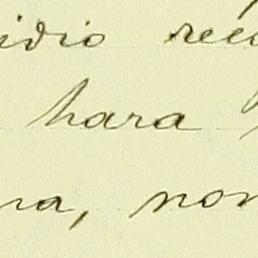 idio rec
hara
na, non